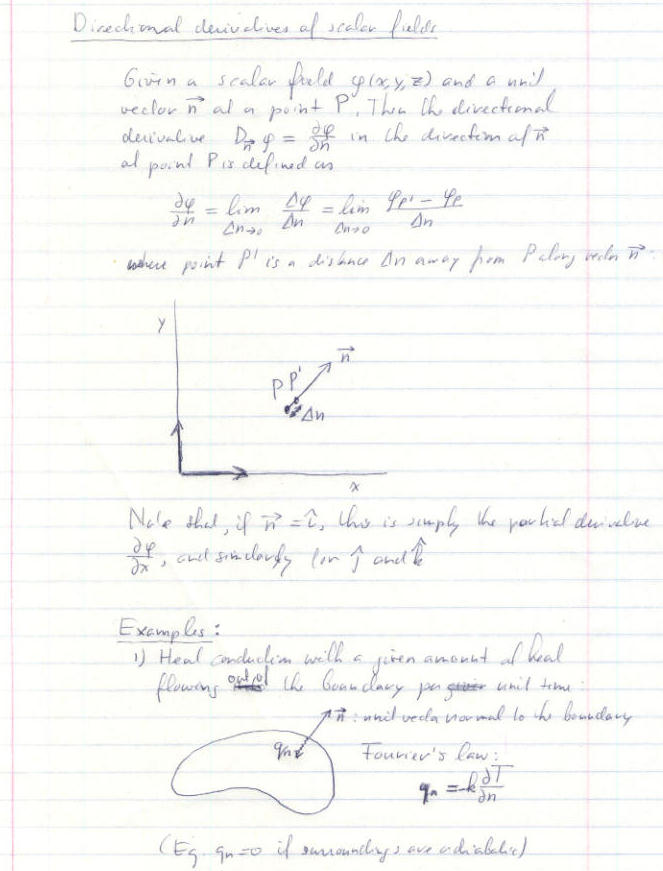 Directional derivatives of scalar fields
Given a scalar field φ(x,y,z) and a unit
vector n⃗ at a point P. Then the directional
derivative D_n⃗ φ = ∂φ/∂n in the direction of n⃗
at point P is defined as
∂φ/∂n = lim_{Δn→0} Δφ/Δn = lim_{Δn→0} (φ_P' − φ_P)/Δn
where point P' is a distance Δn away from P along vector n⃗.
y
n⃗
P P'
Δn
x
Note that, if n⃗ = î, this is simply the partial derivative
∂φ/∂x, and similarly for ĵ and k̂
Examples:
1) Heat conduction with a given amount of heat
flowing out of the boundary per unit time:
n⃗: unit vector normal to the boundary
q_n
Fourier's law:
q_n = -k ∂T/∂n
(Eg. q_n=0 if surroundings are adiabatic)